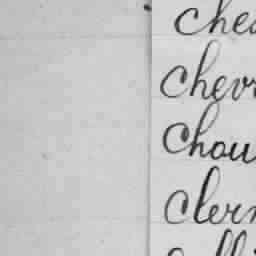 chea
chevr
chou
clern